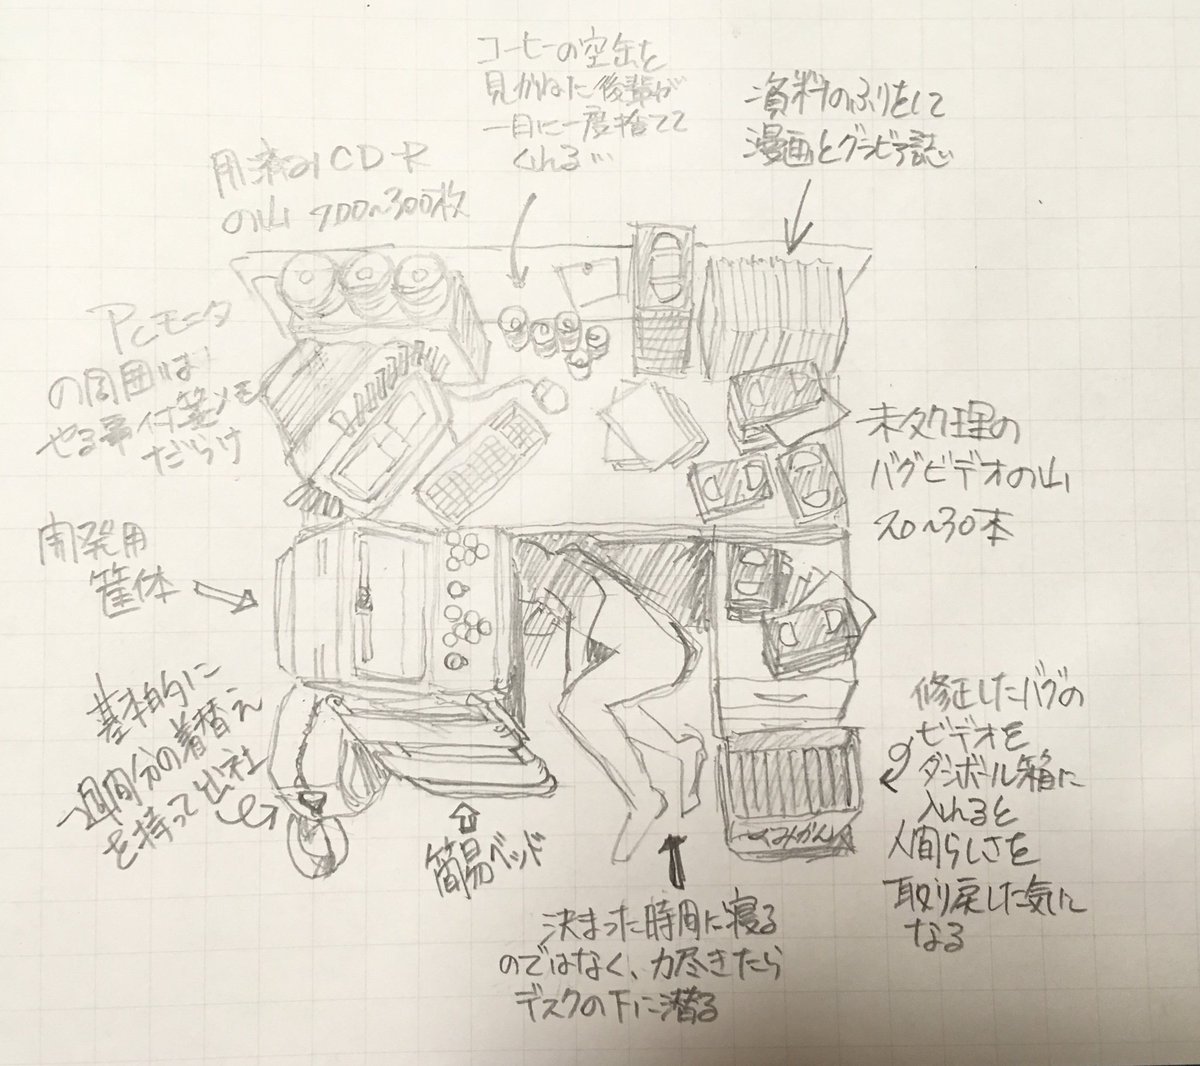 コーヒーの空缶を
見かねた後輩が
一日に一度捨てて
くれる…
資料のふりをして
漫画とグラビア誌
用済みCD-R
の山 200~300枚
PCモニタ
の周囲は
やる事付箋メモ
だらけ
未処理の
バグビデオの山
20~30本
開発用
筐体
基本的に
1週間分の着替え
を持って出社
簡易ベッド
修正したバグの
ビデオを
ダンボール箱に
入れると
人間らしさを
取り戻した気に
なる
みかん
決まった時間に寝る
のではなく、力尽きたら
デスクの下に潜る